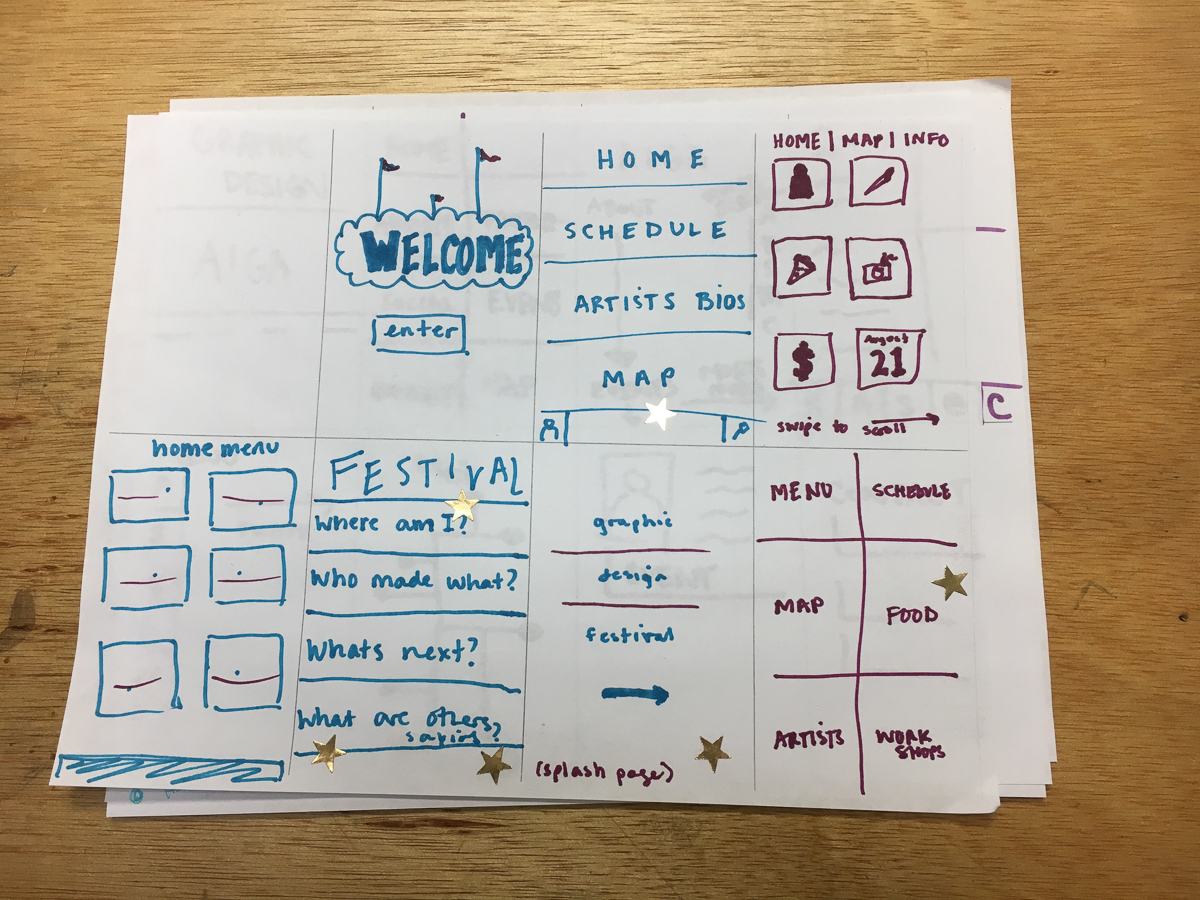 WELCOME
enter
HOME
SCHEDULE
ARTISTS BIOS
MAP
HOME | MAP | INFO
$
August
21
swipe to scroll
C
home menu
FESTIVAL
Where am I?
Who made what?
Whats next?
What are others
saying?
graphic
design
festival
(splash page)
MENU
SCHEDULE
MAP
FOOD
ARTISTS
WORK
SHOPS